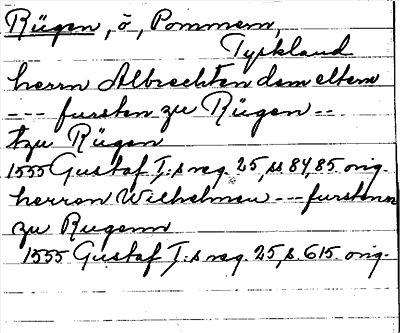 Rügen, ö, Pommern,
Tyskland
herrn Albrechten dem eltern
--- fursten zu Rügen --
tzu Rügen
1555 Gustaf I:s reg. 25, ss. 84, 85. orig.
herren Wilhelmen --- furstenn
zu Rugenn
1555 Gustaf I:s reg. 25, s. 615. orig.